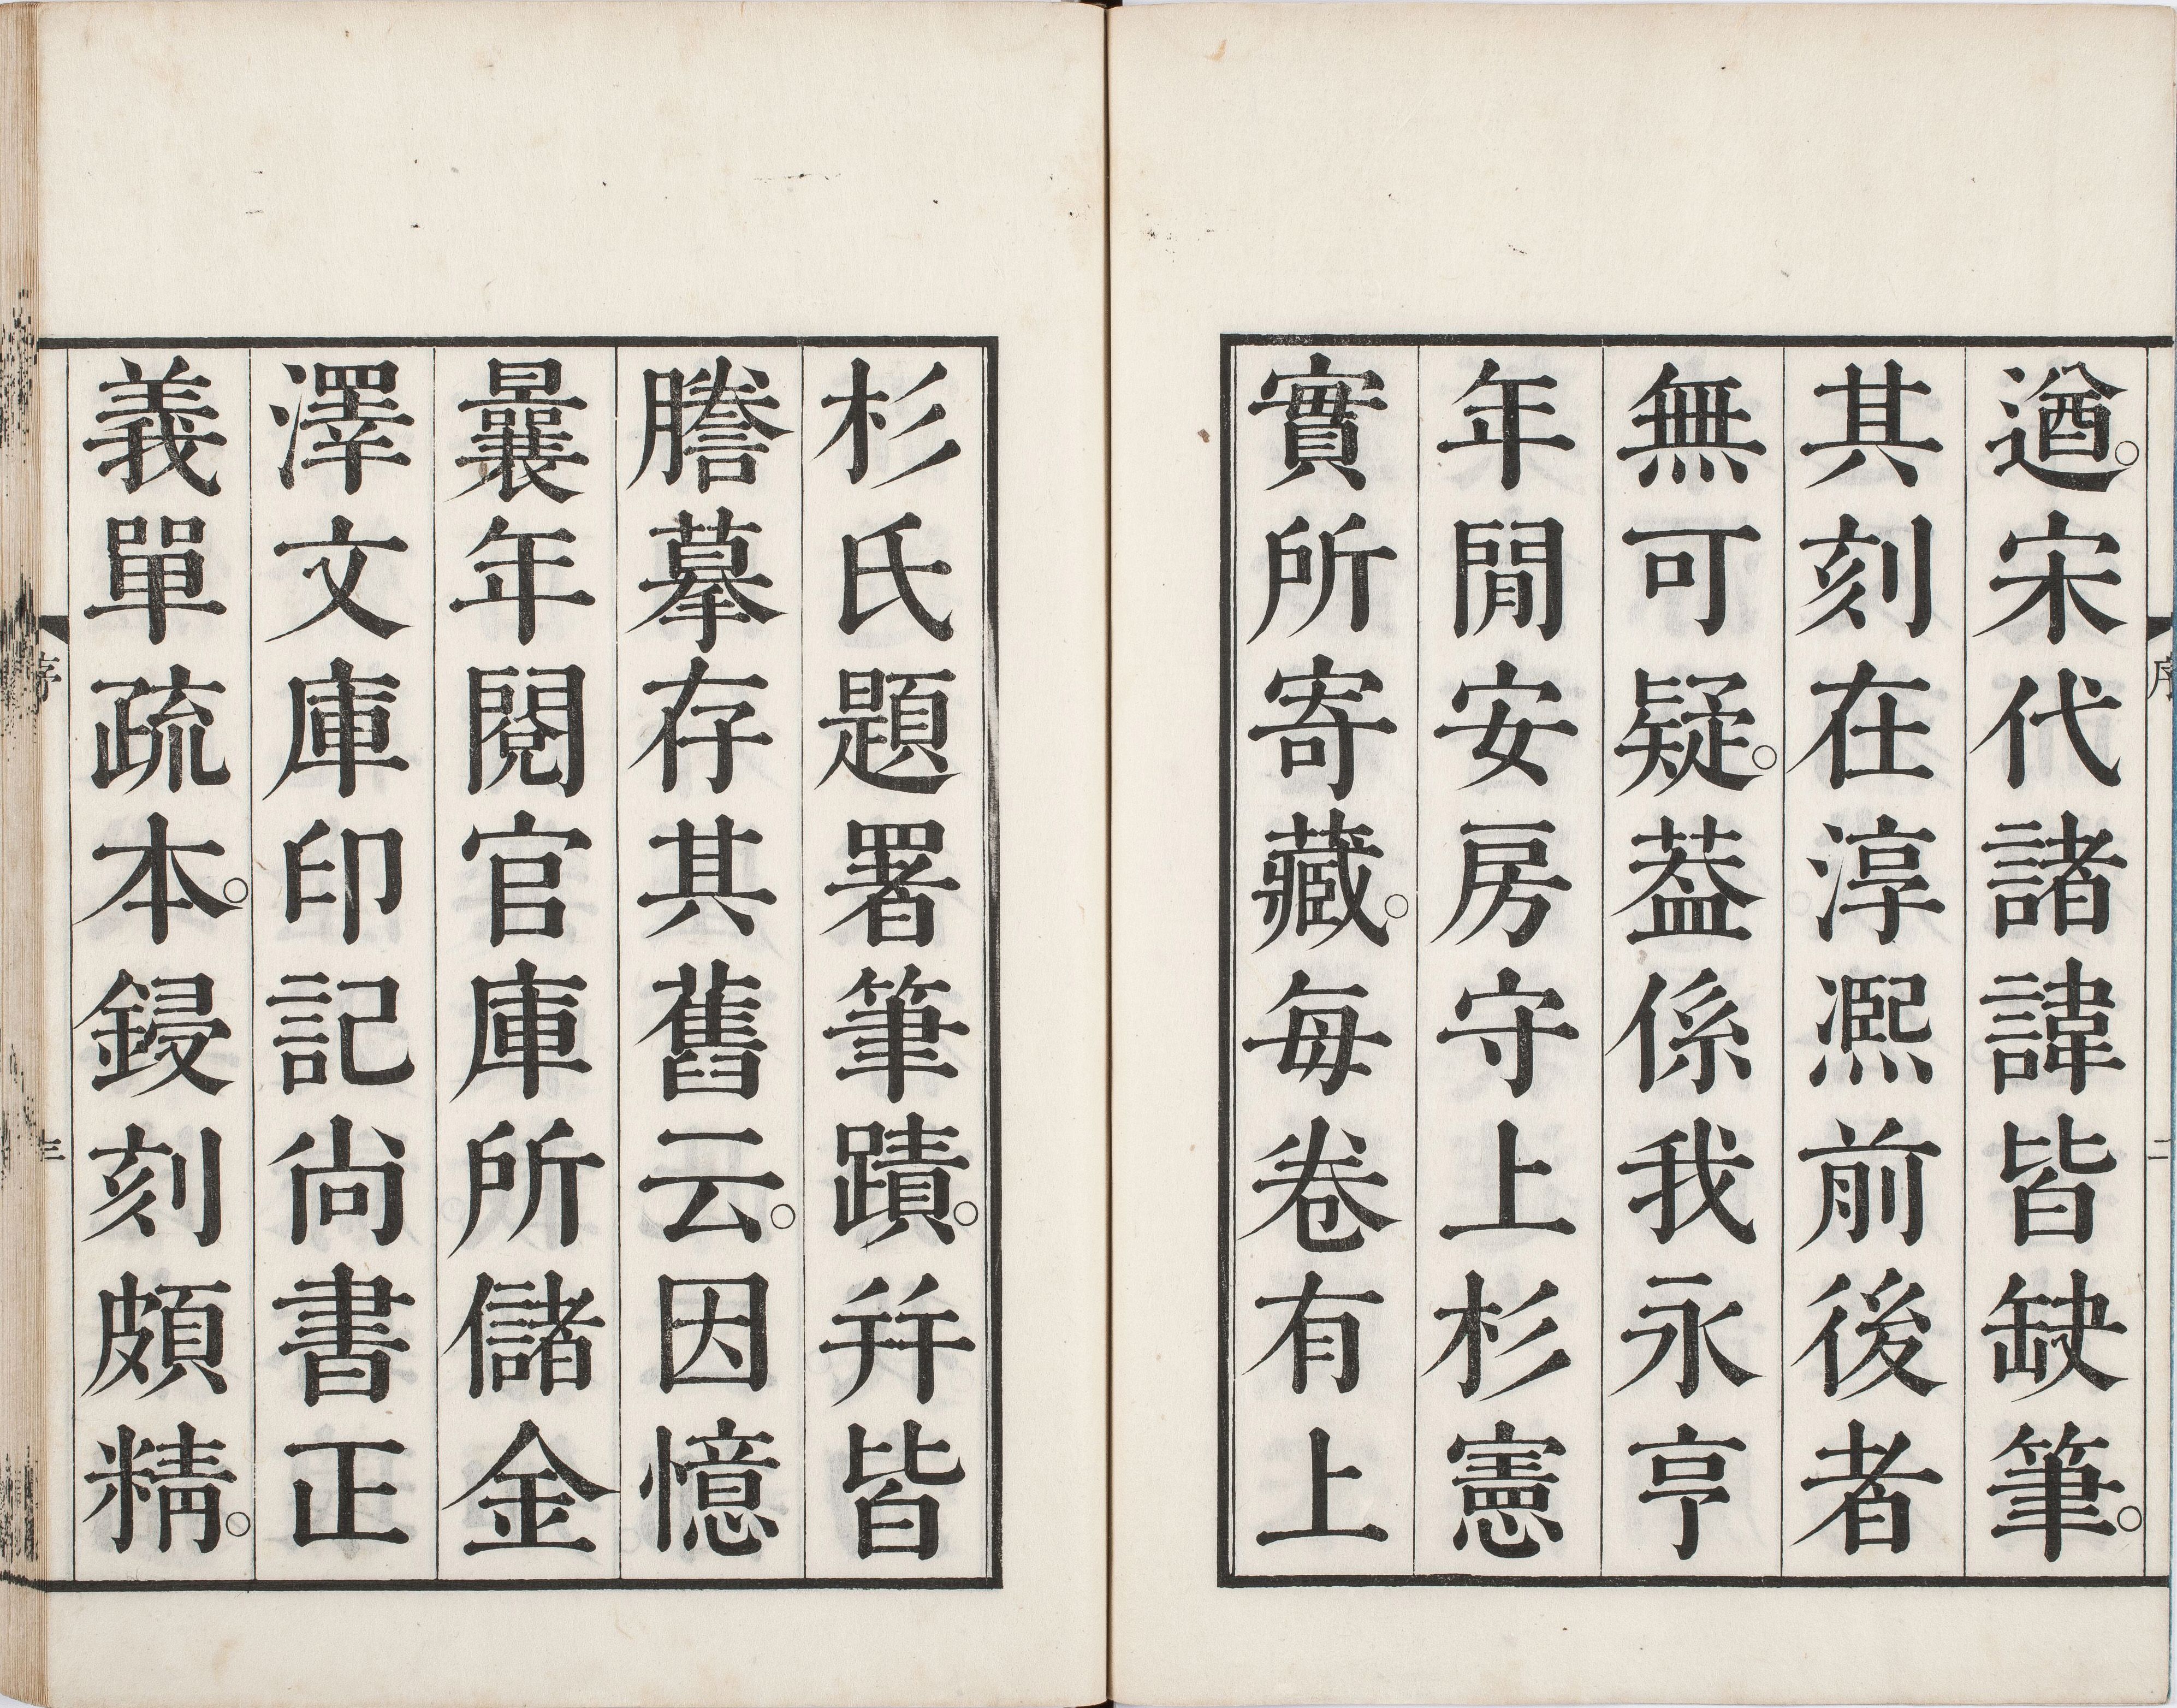 遒。宋代諸諱皆缺筆。
其刻在淳熈前後者
無可疑。葢係我永亨
年閒安房守上杉憲
實所寄藏。每卷有上
序
二
杉氏題署筆蹟。幷皆
謄摹存其舊云。因憶
曩年閱官庫所儲金
澤文庫印記尚書正
義單疏本。鋟刻頗精。
序
三